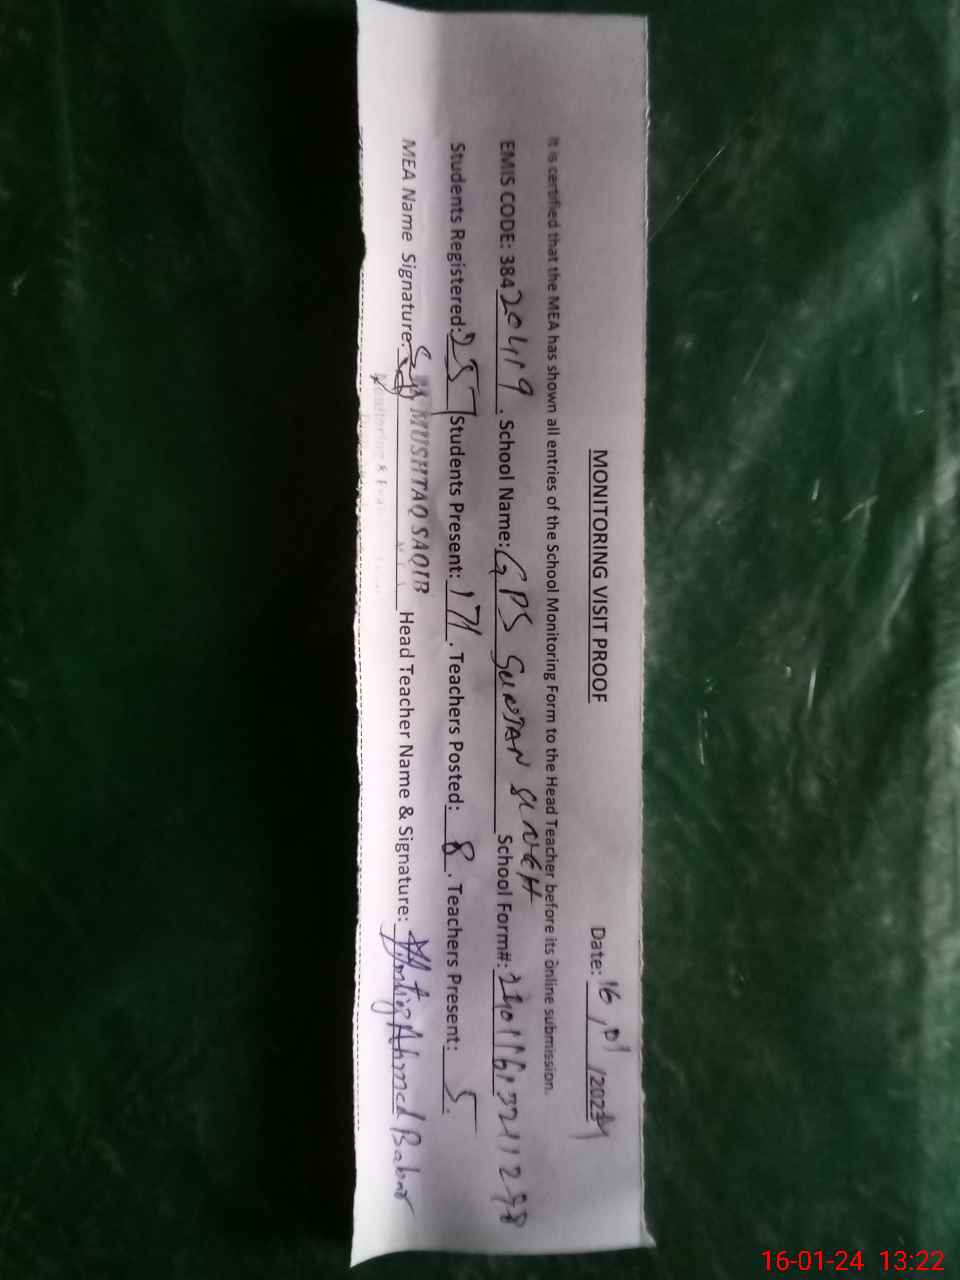 MONITORING VISIT PROOF
Date: 16/01/2024
It is certified that the MEA has shown all entries of the School Monitoring Form to the Head Teacher before its online submission.
EMIS CODE: 38420419. School Name: GPS SURJAN SINGH School Form#:
Students Registered: 257 Students Present: 171. Teachers Posted: 8. Teachers Present: 5.
MEA Name Signature: MUSHTAQ SAQIB Head Teacher Name & Signature: Ahmed Babar
Monitoring &
16-01-24 13:22